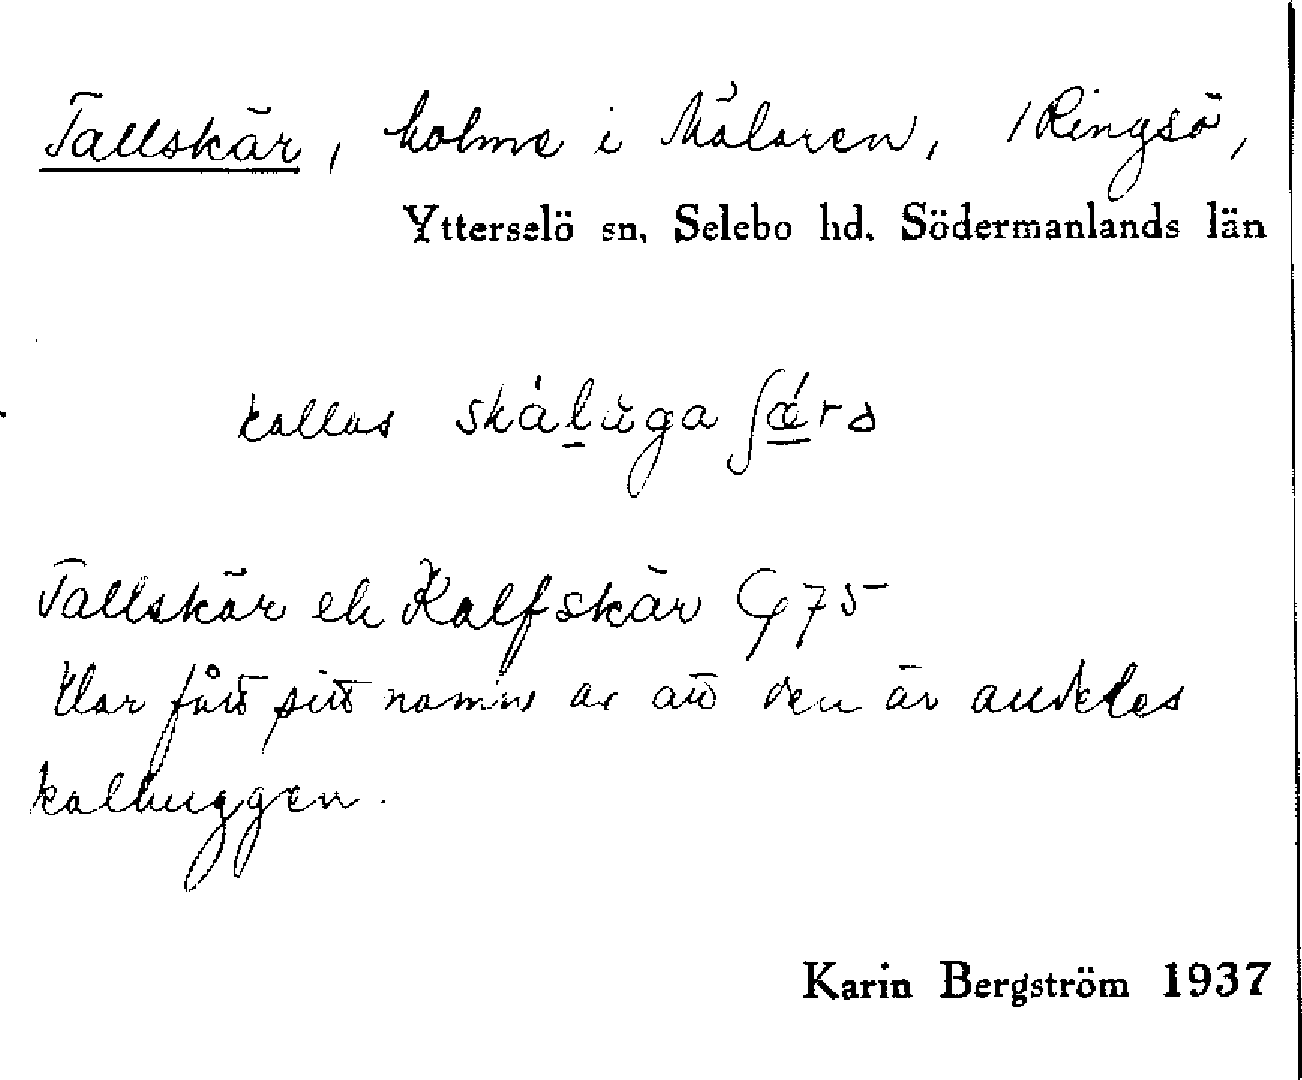 Tallskär, holme i Mälaren, /Ringsö,
Ytterselö sn, Selebo hd. Södermanlands län
kallas skàl̲ɩga ʃǽ̲rə
Tallskär el. Kalfskär G 75
Har fått sitt namn av att den är alldeles
kalhuggen.
Karin Bergström 1937